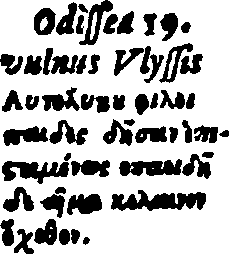 Odiſſea 19.
vulnus Vlyſſis
Αυτολυκυ φιλοι
παιδες δῆσαν ἐπι-
σταμένως επαοιδῆ
δε αἷμα κελαινον
ἔχεθον.